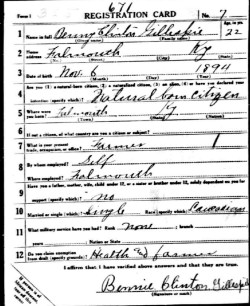 Form 1 671 No. 7
REGISTRATION CARD
1 Name in full Benny Clinton Gillespie Age, in yrs. 22
(Given name) (Family name)
2 Home address Falmouth Ky
3 Date of birth Nov. 6 1894
4 Natural born citizen
5 Where were you born? Falmouth Ky
6 If not a citizen, of what country are you a citizen or subject?
7 What is your present trade, occupation, or office? Farmer 1
8 By whom employed? Self
Where employed? Falmouth
9 Have you a father, mother, wife, child under 12, or a sister or brother under 12, solely dependent on you for support (specify which)? no
10 Married or single (which)? Single Race (specify which)? Caucasian
11 What military service have you had? Rank none ; branch
years ; Nation or State
12 Do you claim exemption from draft (specify grounds)? Health & farmer
I affirm that I have verified above answers and that they are true.
Bennie Clinton Gillespi
(Signature or mark)